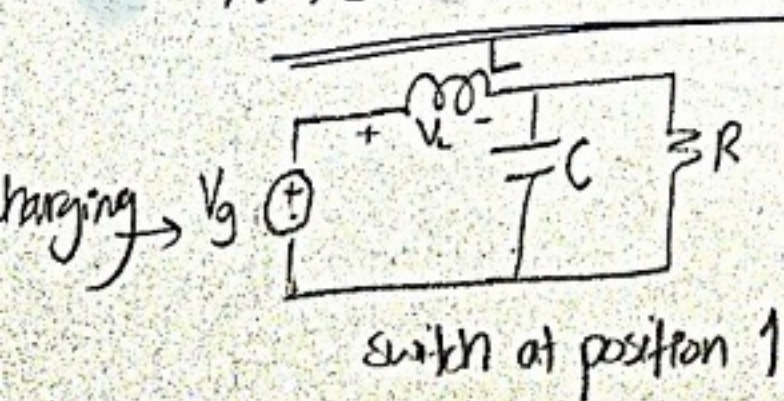 L
+ V_L -
harging → Vg + C R
switch at position 1